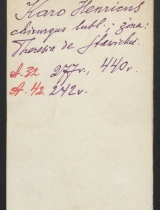 Karo Henricus
chirurgus lubl.; żona:
Theresia de Slawicki
A. 32 277v., 440v.
A. 42 242v.